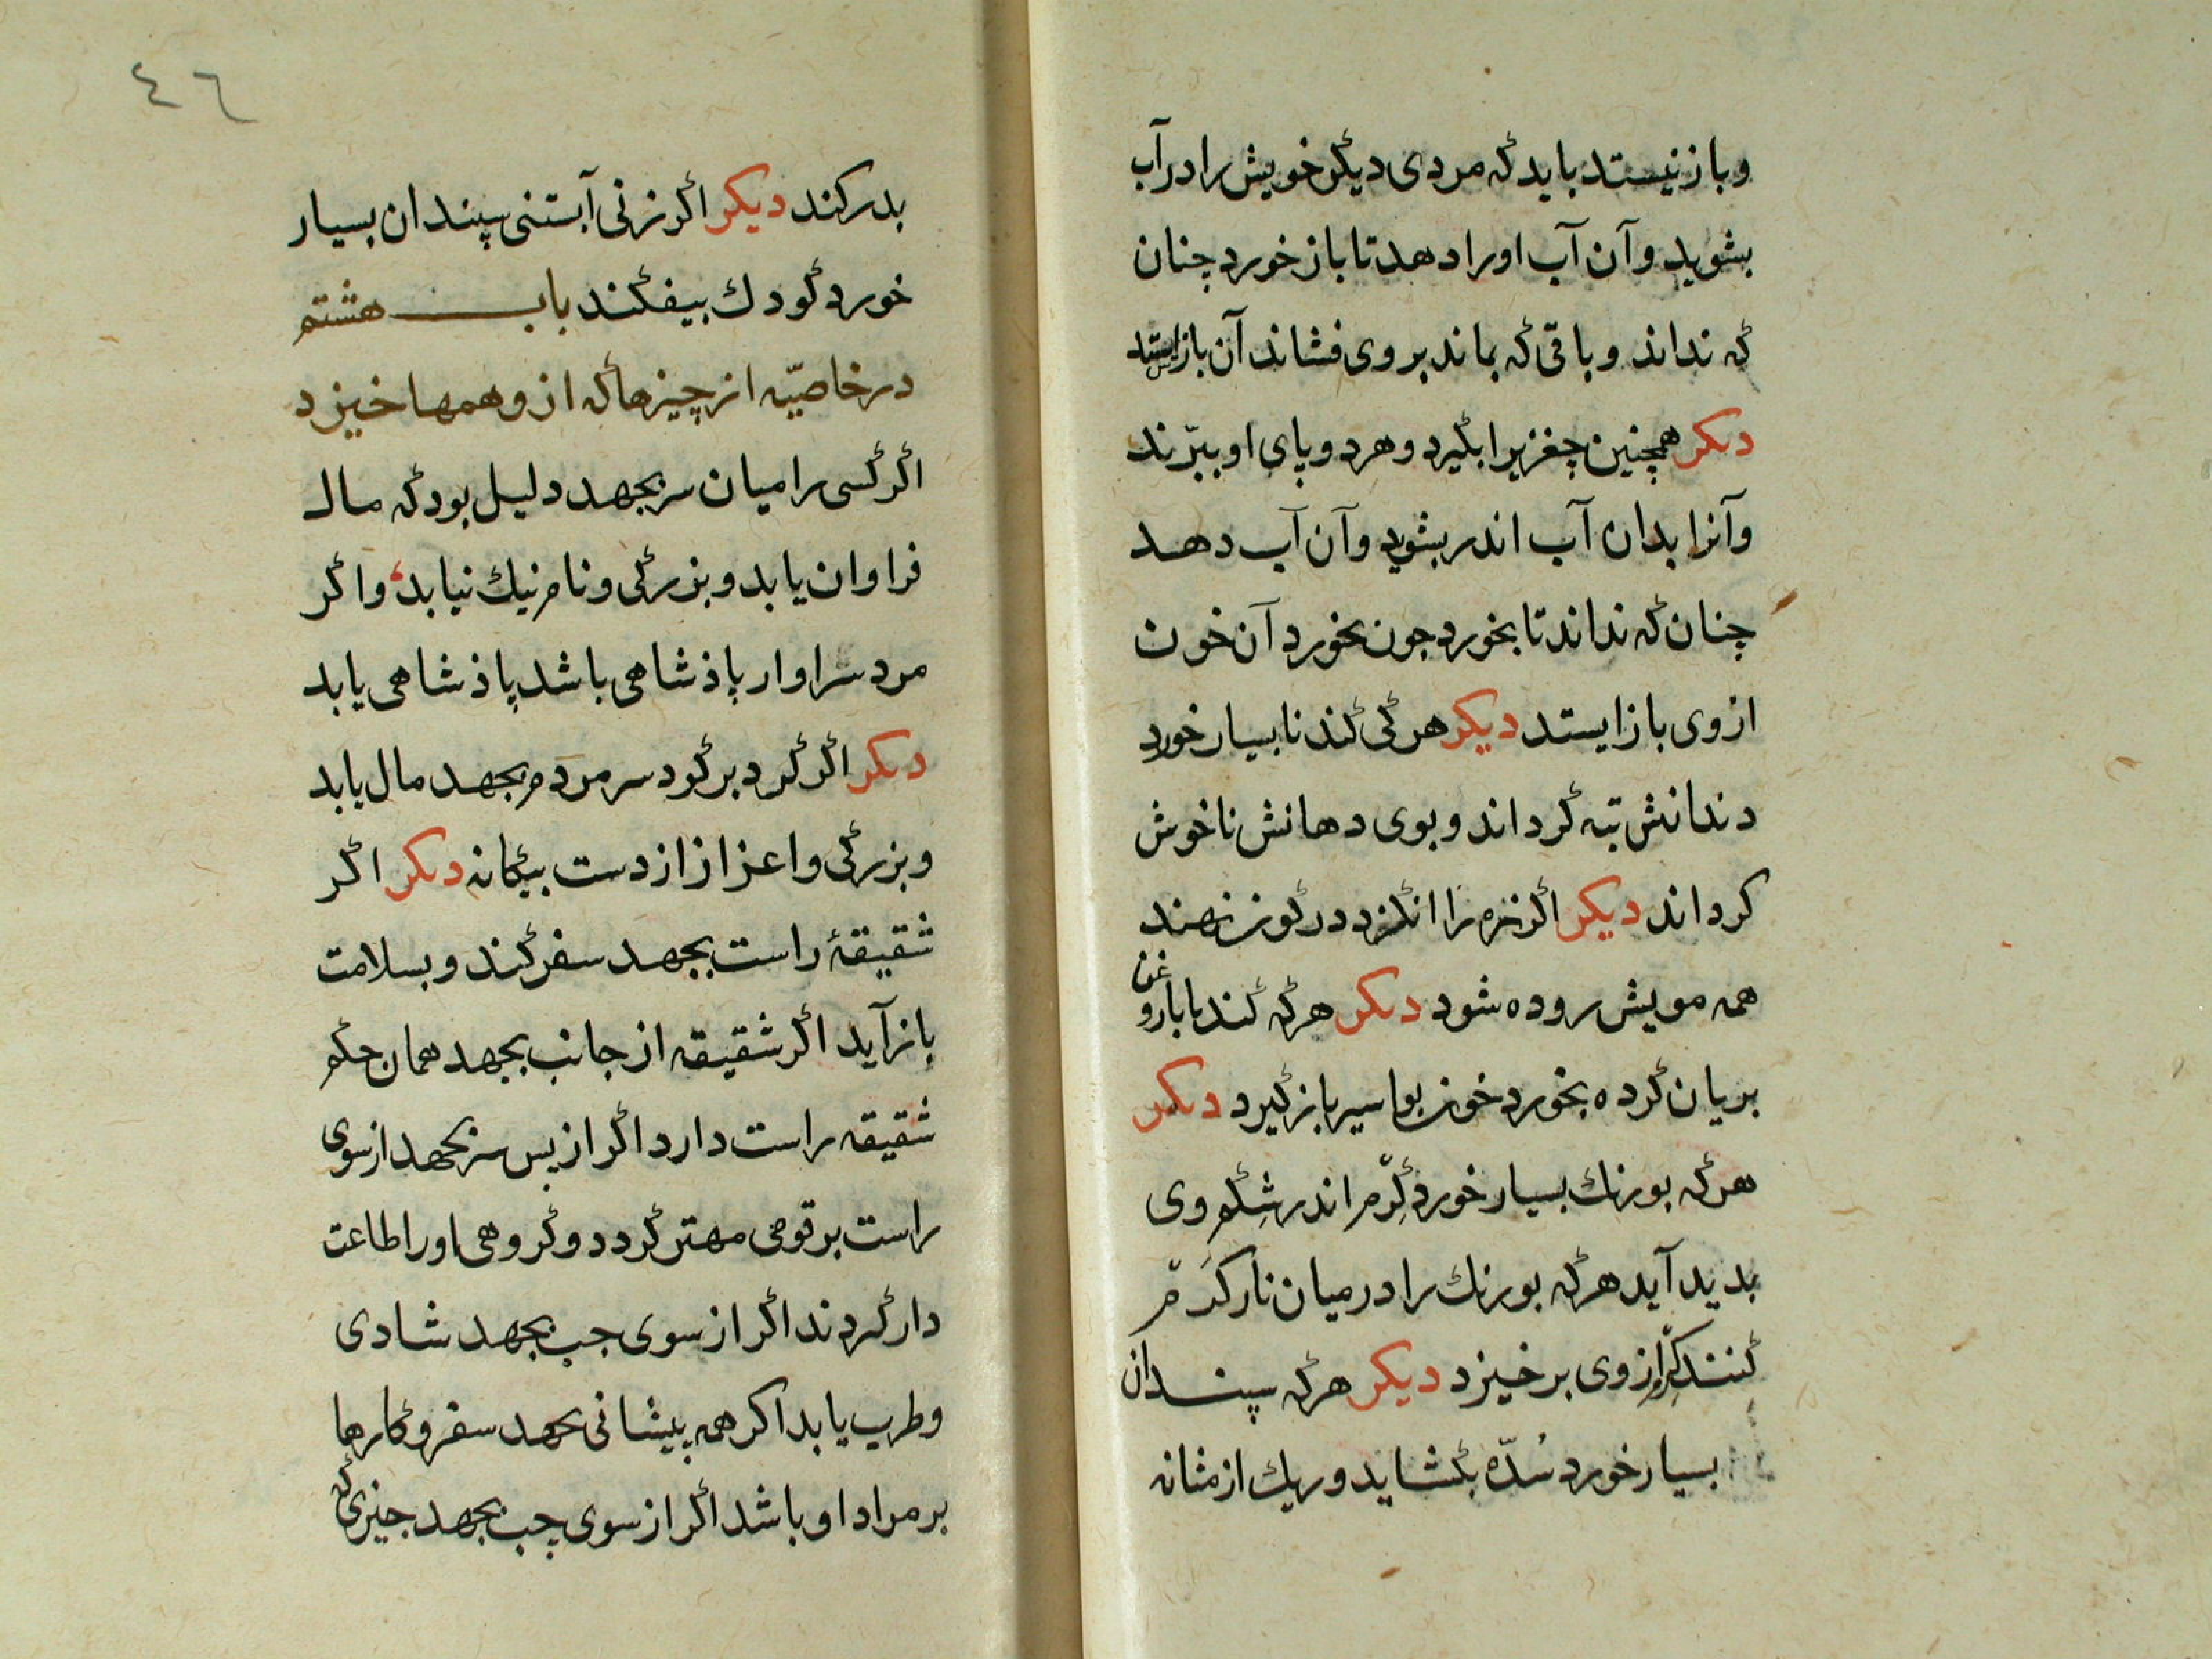 وباز نیستد باید که مردی دیگر خویش را در آب
بشوید و آن آب او را دهد تا باز خورد چنان
که نداند و باقی که بماند بر وی فشاند آن باز ایستد
دیکر همچنین چغزیرا بگیرد و هر دو پای او ببرّند
و آنرا بدان آب اندر بشوید و آن آب دهد
چنان که نداند تا بخورد جون بخورد آن خون
از وی باز ایستد دیکر هرکی کندنا بسیار خورد
دندانش تبه گرداند و بوی دهانش ناخوش
کرداند دیکر اگر در گوز نهند
همه مویش روده شود دیکر هرکه کندنا با روغن
بریان کرده بخورد خون بواسیر باز گیرد دیکر
هرکه بورنك بسیار خورد کِرّم اندر شِکم وی
بدید آید هرکه بورنك را در میان نار کَرّم
کنند کِرّم از وی برخیزد دیکر هرکه سپندان
بسیار خورد سُدّه بگشاید و ریك از مثانه
٤٦
بدر کند دیکر اگر زنی آبستنی سپندان بسیار
خورد کودك بیفکند باب هشتم
در خاصیّه از چیزها که از وهمها خیزد
اگر کسی را میان سر بجهد دلیل بود که مال
فراوان یابد و بزرگی و نام نیك نیابد و اگر
مرد سزاوار پاذشاهی باشد پاذشاهی یابد
دیکر اگر گرد بر گرد سر مردم بجهد مال یابد
و بزرگی و اعزاز از دست بیگانه دیکر اگر
شقیقهٔ راست بجهد سفر کند و بسلامت
باز آید اگر شقیقه از جانب بجهد همان حکم
شقیقه راست دارد اگر از پس سر بجهد از سوی
راست بر قومی مهتر گردد و گروهی او را طاعت
دار گردند اگر از سوی جب بجهد شادی
و طرب یابد اکر همه پیشانی بجهد سفر و کارها
بر مراد او باشد اگر از سوی چب بجهد جیزی که